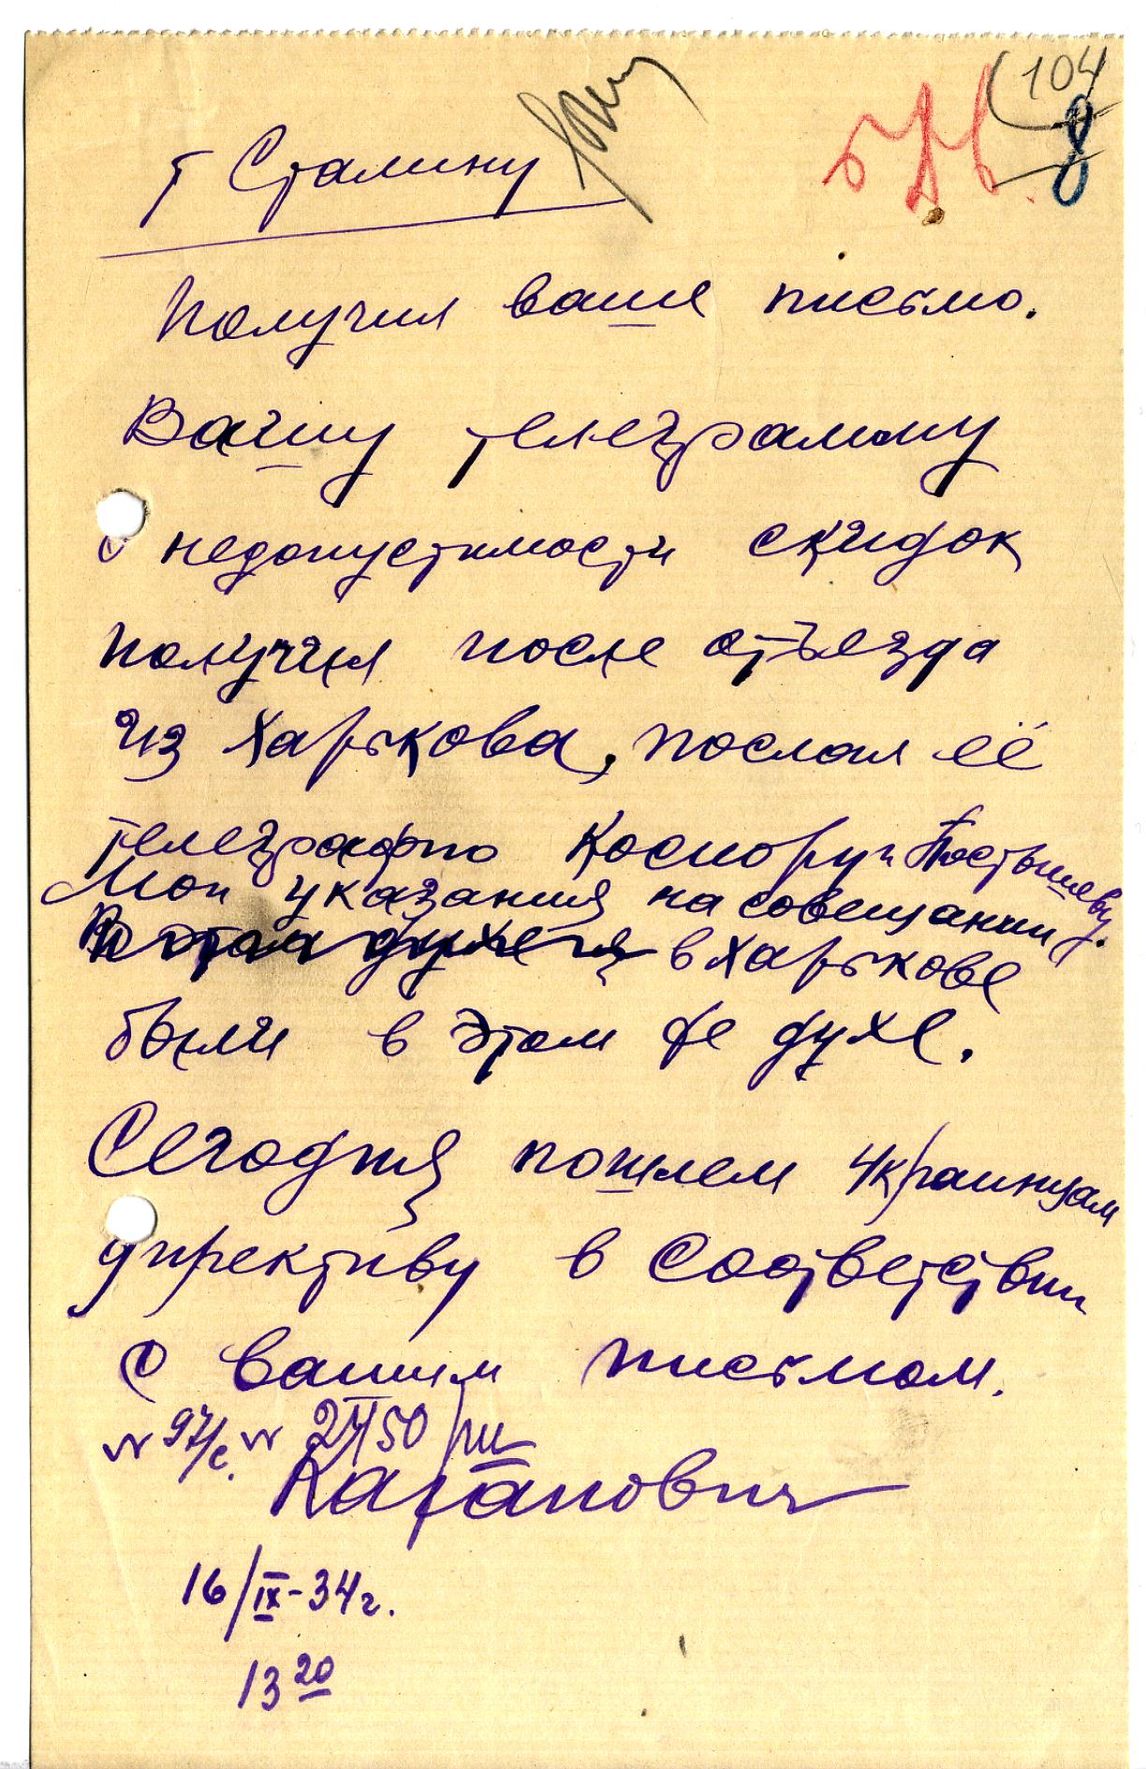 104
8
т Сталину
Получил ваше письмо.
Вашу телеграмму
о недопустимости скидок
получил после отъезда
из Харькова, послал её
телеграфно Косиору и Постышеву.
Мои указания на совещании
в Харькове
были в этом же духе.
Сегодня пошлем украинцам
директиву в соответствии
с вашим письмом.
N 97/с. N
Каганович
16/IX-34г.
13 20